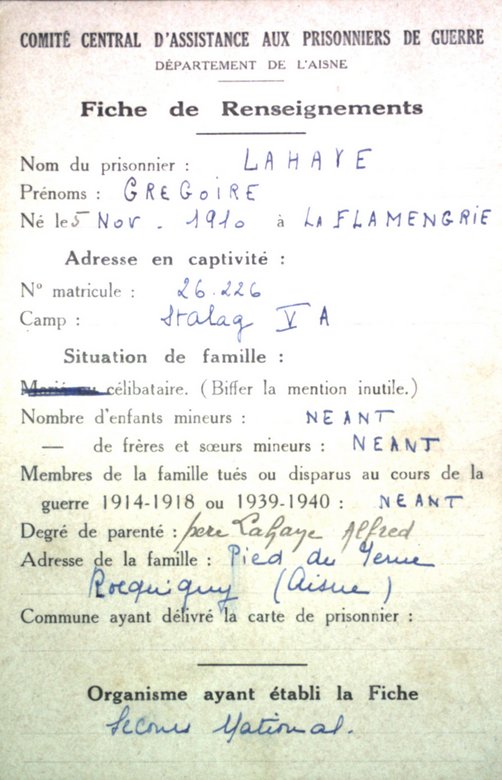 COMITÉ CENTRAL D'ASSISTANCE AUX PRISONNIERS DE GUERRE
DÉPARTEMENT DE L'AISNE
Fiche de Renseignements
Nom du prisonnier : LAHAYE
Prénoms : GREGOIRE
Né le 5 NOV. 1910 à LA FLAMENGRIE
Adresse en captivité :
N° matricule : 26.226
Camp : Stalag V A
Situation de famille :
Marié ou célibataire. (Biffer la mention inutile.)
Nombre d'enfants mineurs : NEANT
— de frères et sœurs mineurs : NEANT
Membres de la famille tués ou disparus au cours de la
guerre 1914-1918 ou 1939-1940 : NEANT
Degré de parenté : père Lahaye Alfred
Adresse de la famille : Pied du
Rocquigny (Aisne)
Commune ayant délivré la carte de prisonnier :
Organisme ayant établi la Fiche
Secours National.